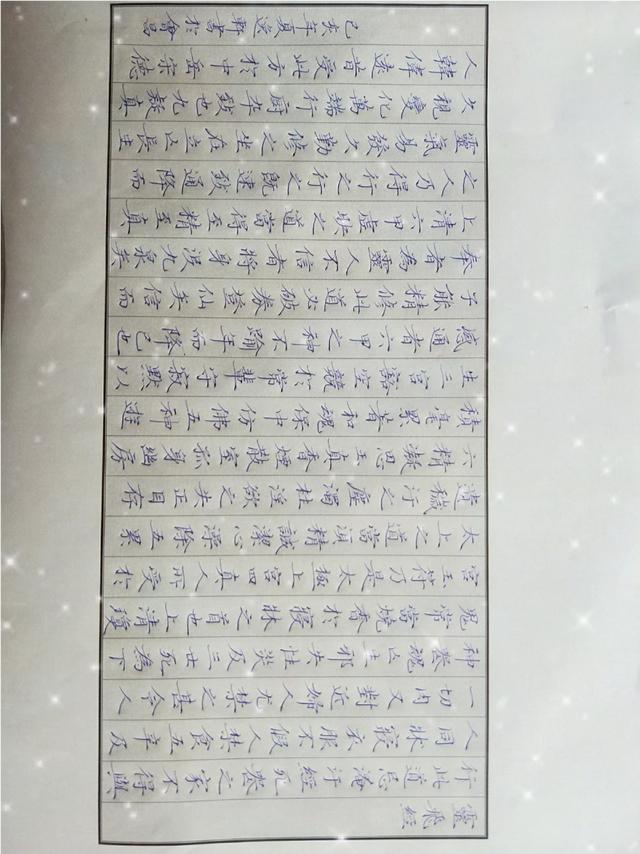 靈飛經
行此道忌淹汙經死喪之家不得與
人同牀寢衣服不假人禁食五辛及
一切肉又對近婦人尤禁之甚令人
神喪魂亡生邪失性災及三世死為下
鬼常當燒香於寢牀之首也上清瓊
宮玉符乃是太極上宮四真人所受於
太上之道當須精誠潔心澡除五累
遺穢汙之塵濁杜淫欲之失正目存
六精凝思玉真香煙散室孤身幽房
積毫累著和魂保中仿佛五神遊
生三宮豁空競於常輩守寂默以
感通者六甲之神不踰年而降己也
子能精修此道必破券登仙矣信而
奉者為靈人不信者將身沒九泉矣
上清六甲虛映之道當得至精至真
之人乃得行之行之既速致通降而
靈氣易發久勤修之坐在立亡長生
久視變化萬端行廚卒致也九疑真
人韓偉遠昔受此方於中岳宋德
己亥年夏軒書於會昌